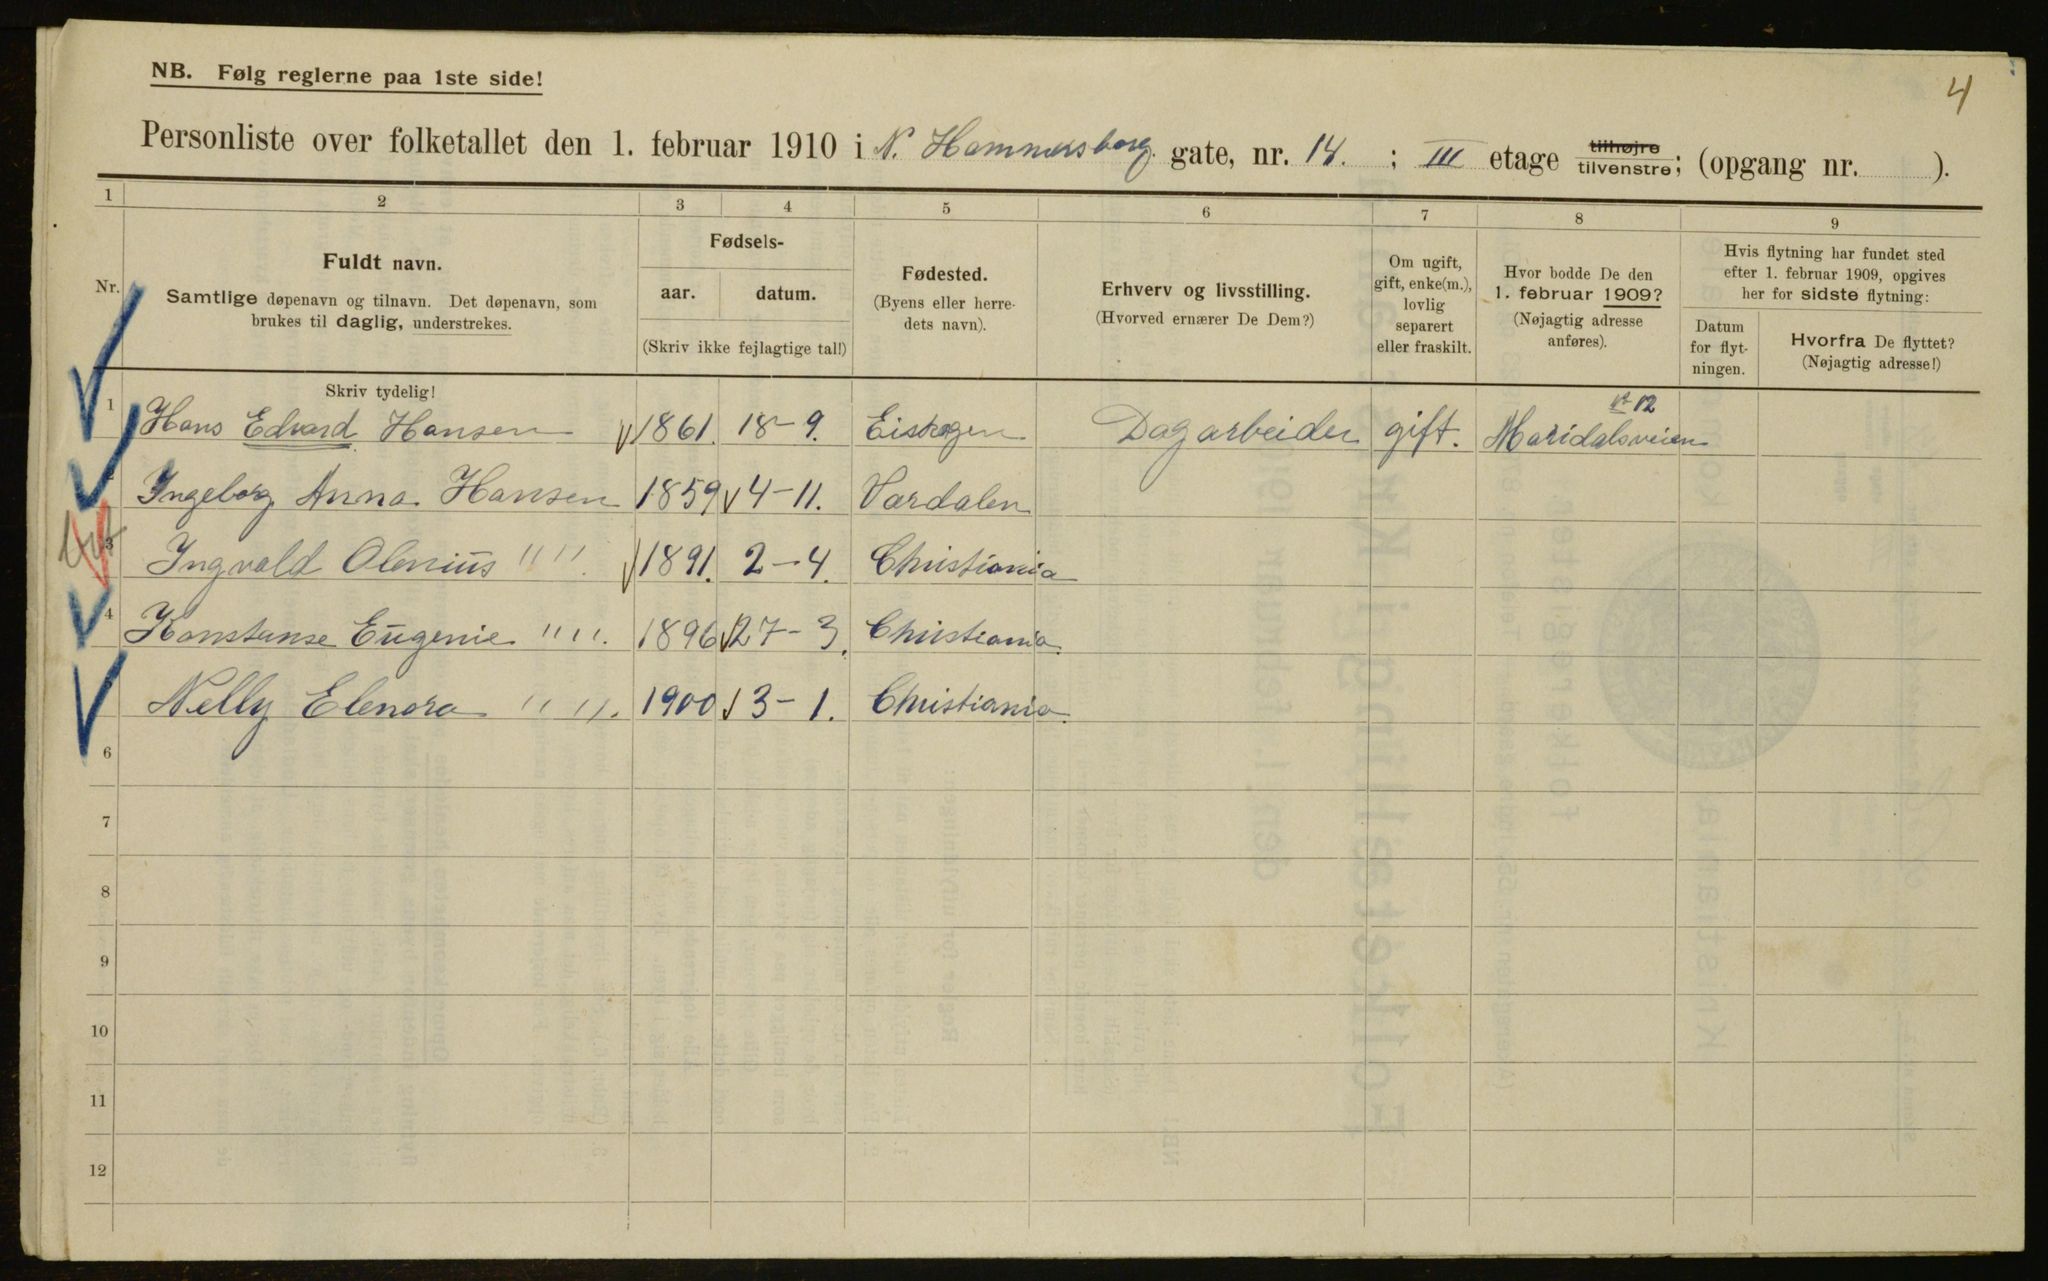 4
NB. Følg reglerne paa 1ste side!
Personliste over folketallet den 1. februar 1910 i N. Hammersborg gate, nr. 14. ; III etage tilhøjre tilvenstre; (opgang nr. ).
1 2 3 4 5 6 7 8 9
Nr.
Fuldt navn.
Samtlige døpenavn og tilnavn. Det døpenavn, som
brukes til daglig, understrekes.
Skriv tydelig!
Fødsels-
aar. datum.
(Skriv ikke fejlagtige tal!)
Fødested.
(Byens eller herre-
dets navn).
Erhverv og livsstilling.
(Hvorved ernærer De Dem?)
Om ugift,
gift, enke(m.),
lovlig
separert
eller fraskilt.
Hvor bodde De den
1. februar 1909?
(Nøjagtig adresse
anføres).
Hvis flytning har fundet sted
efter 1. februar 1909, opgives
her for sidste flytning:
Datum
for flyt-
ningen.
Hvorfra De flyttet?
(Nøjagtig adresse!)
1 Hans Edvard Hansen 1861. 18-9. Eiskogen Dagarbeider gift. Maridalsveien № 12
Ingeborg Anna Hansen 1859 4-11. Værdalen
3 Ingvald Olenius " " 1891. 2-4. Christiania
4 Konstanse Eugenie " " 1896 27-3. Christiania
Nelly Elenora " " 1900 3-1. Christiania
6
7
8
9
10
11
12